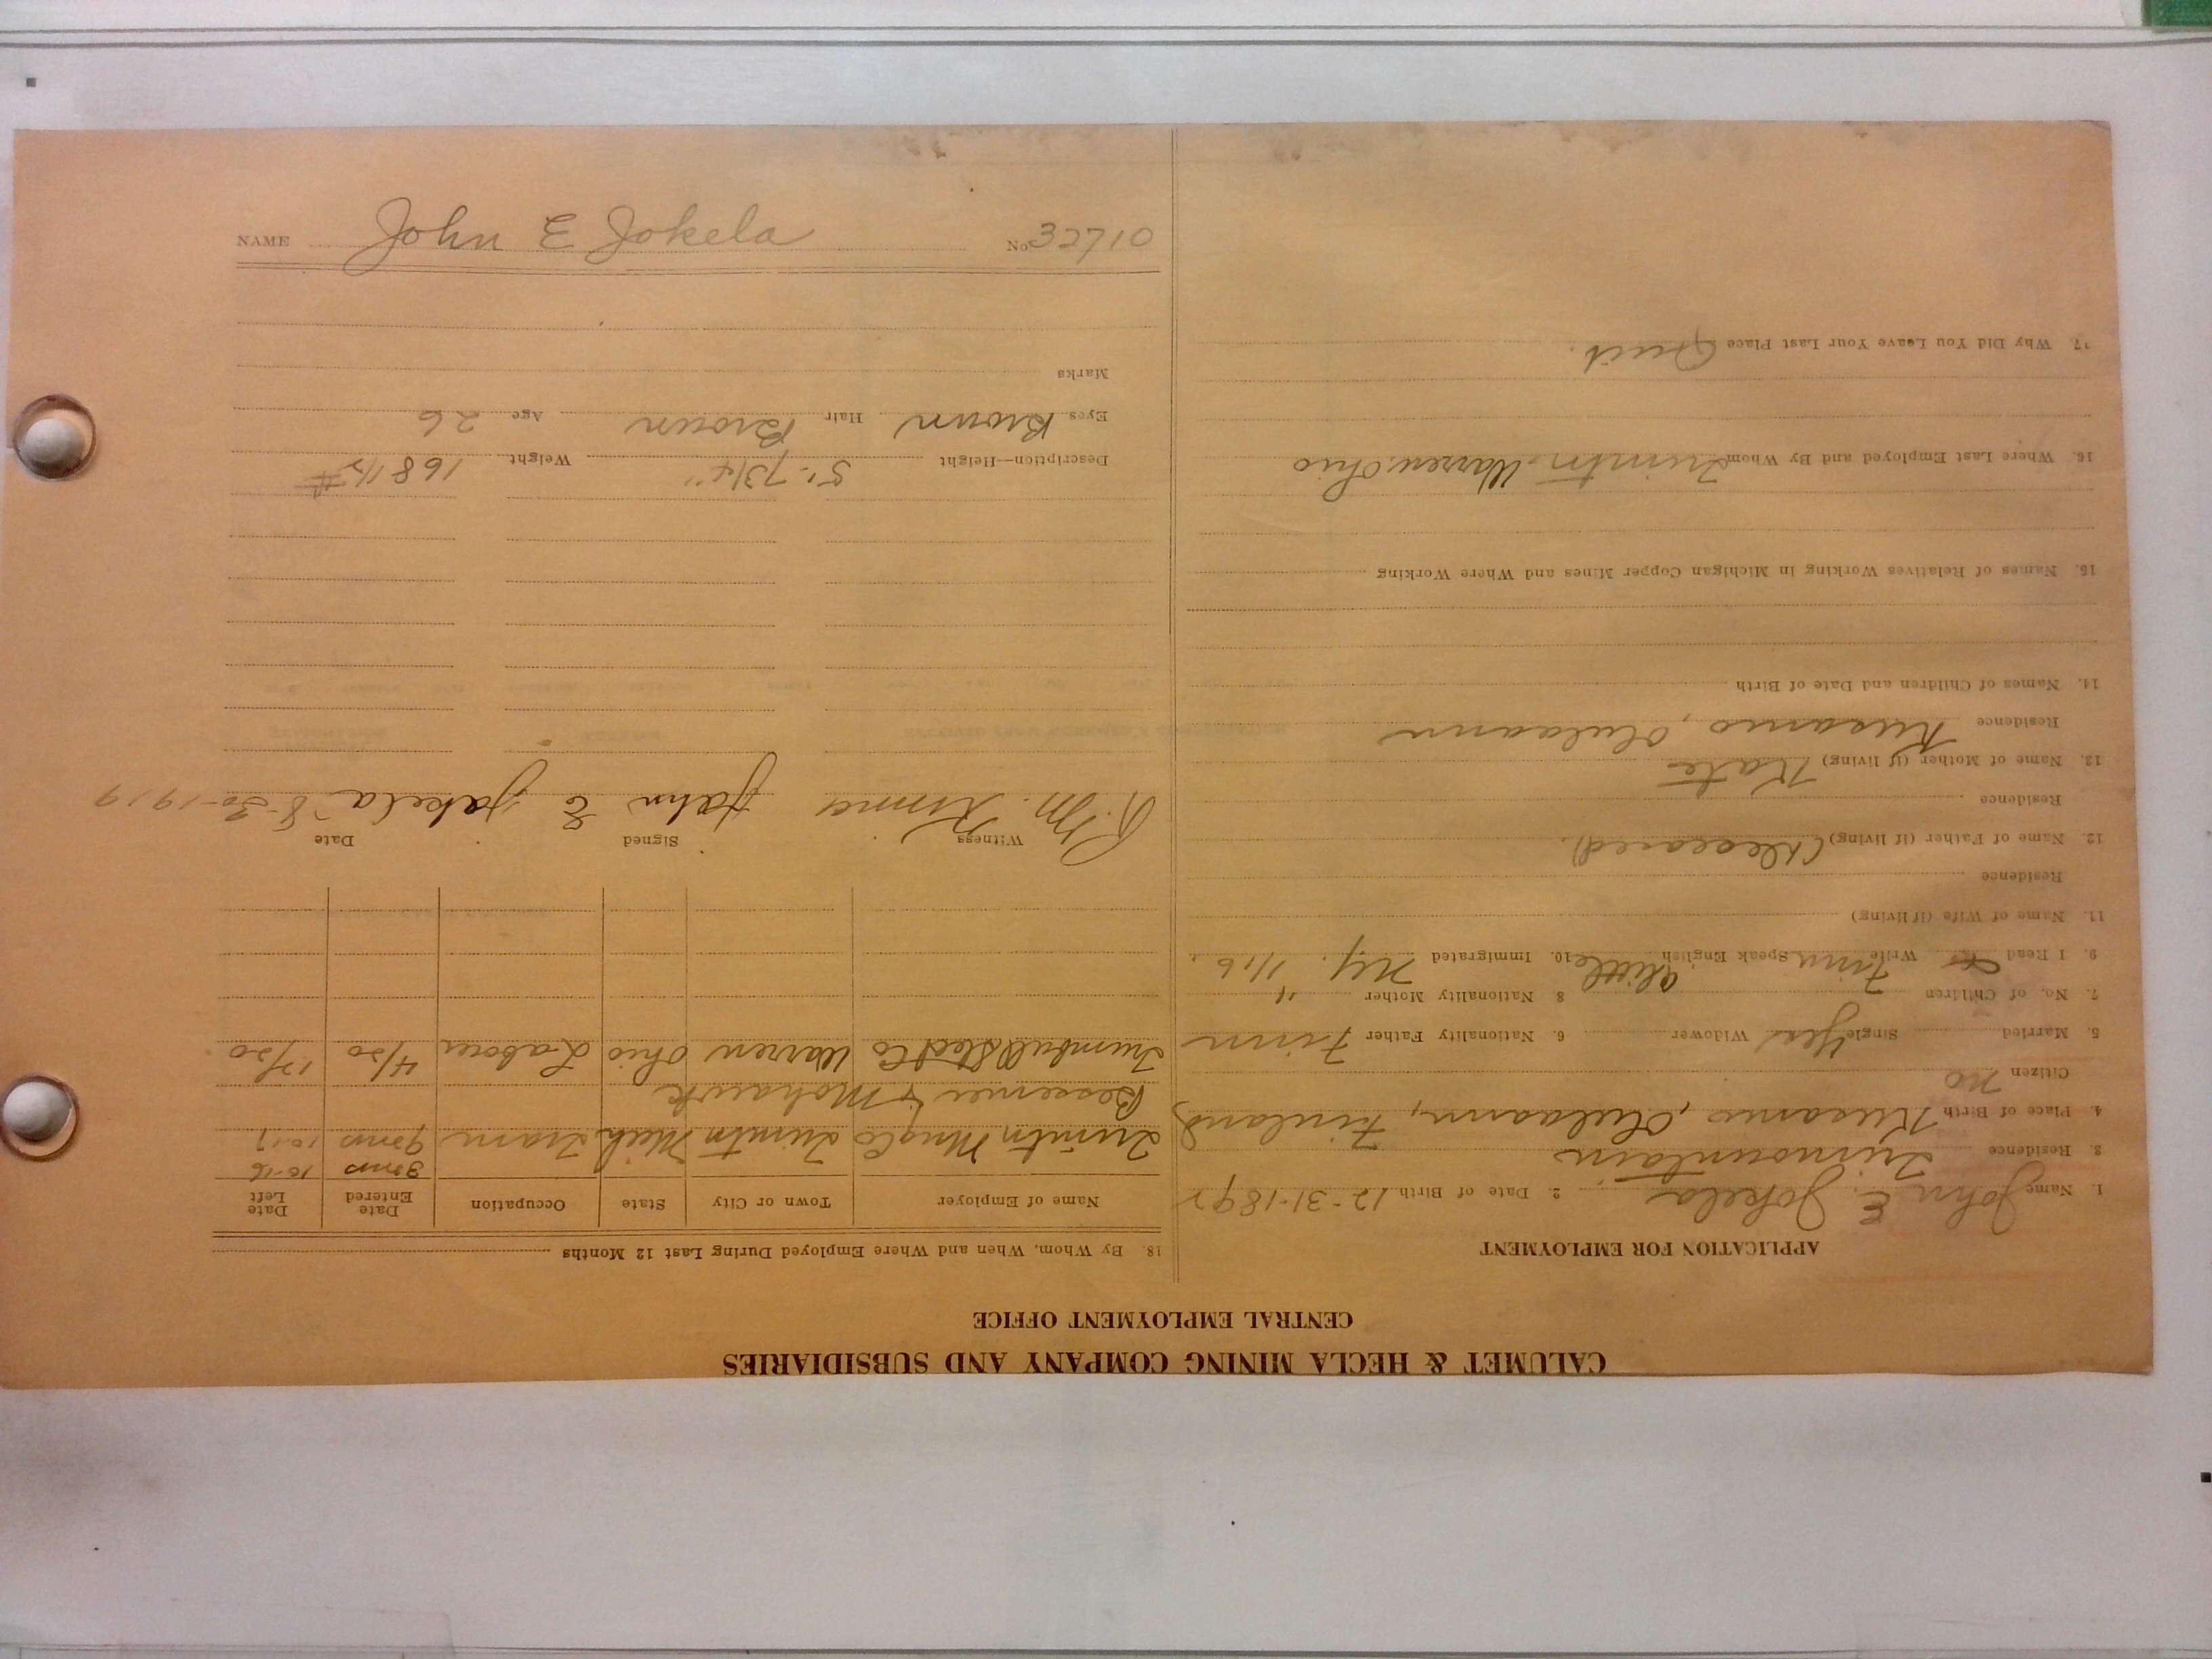 CALUMET & HECLA MINING COMPANY AND SUBSIDIARIES
CENTRAL EMPLOYMENT OFFICE
APPLICATION FOR EMPLOYMENT
1. Name John E. Jokela 2. Date of Birth 12-31-1892
3. Residence Trimountain
4. Place of Birth Kusamo, Oulaann, Finland
Citizen no
5. Married Single Yes Widower 6. Nationality Father Finn
7. No. of Children 8 Nationality Mother "
9. I Read Write Finn Speak English little 10. Immigrated NY. 1/16
11. Name of Wife (if living)
Residence
12. Name of Father (if living) (deceased).
Residence
13. Name of Mother (if living) Kate
Residence Kusamo, Oulaann
14. Names of Children and Date of Birth
15. Names of Relatives Working in Michigan Copper Mines and Where Working
16. Where Last Employed and By Whom Trimtn - Warren, Ohio
17. Why Did You Leave Your Last Place Quit.
18. By Whom, When and Where Employed During Last 12 Months
Name of Employer Town or City State Occupation Date Entered Date Left
3 mos 10-16
Trimtn Mng Co Trimtn Mich Tram 9 mos 10-17
Bessemer & Mohawk
Trumbull Steel Co Warren Ohio Labour 4/20 12/20
Witness Signed Date
R. M. John E Jokela 8-30-1919
Description—Height 5'-7 3/4" Weight 168 1/2 #
Eyes Brown Hair Brown Age 26
Marks
NAME John E Jokela No 32710